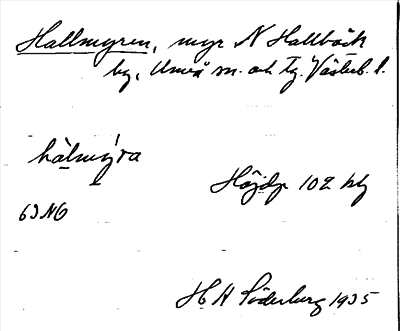 Hallmyren, myr N Hallbäck
by, Umeå sn. och tg. Västerb. l.
hàlmý̨ra
Höjdp 102
63 NO
H H Söderberg 1935